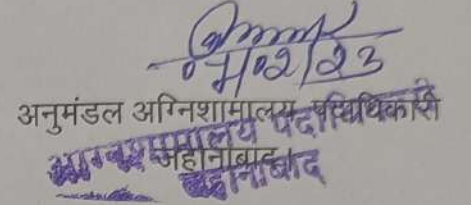 07/02/23
अनुमंडल अग्निशामालय पदाधिकारी
जहानाबाद।
अग्निशामालय पदाधिकारी
जहानाबाद